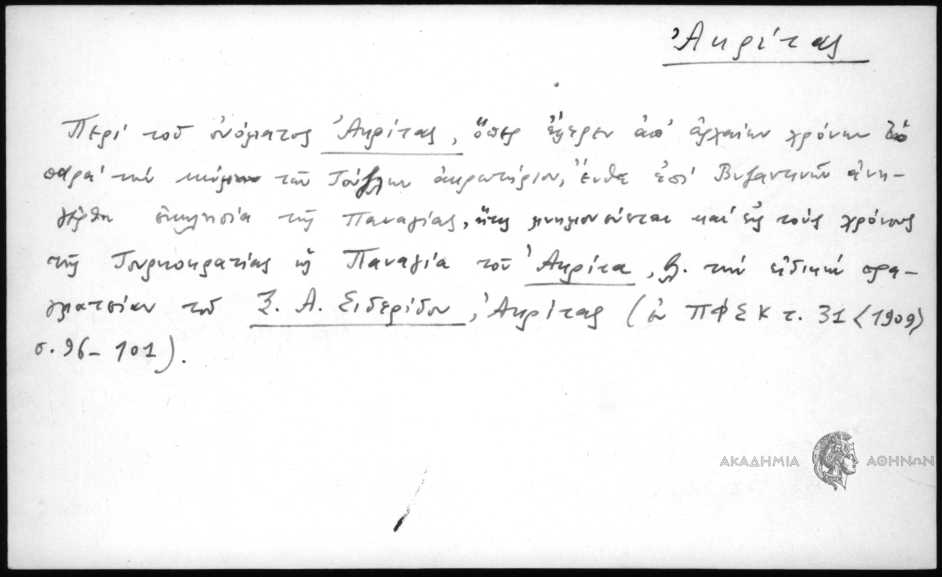 Ἀκρίτας
Περὶ τοῦ ὀνόματος Ἀκρίτας, ὅπερ ἔφερεν ἀπ' ἀρχαίων χρόνων τὸ
παρὰ τὴν κώμην τῶν Τούζλων ἀκρωτήριον, ἔνθα ἐπὶ Βυζαντινῶν ἀνη-
γέρθη ἐκκλησία τῆς Παναγίας, ἥτις μνημονεύεται καὶ εἰς τοὺς χρόνους
τῆς Τουρκοκρατίας ὡς Παναγία τοῦ Ἀκρίτα, βλ. τὴν εἰδικὴν πρα-
γματείαν τοῦ Ξ. Α. Σιδερίδου, Ἀκρίτας (ἐν ΠΦΣΚ τ. 31 <1909>
σ. 96-101).
ΑΚΑΔΗΜΙΑ ΑΘΗΝΩΝ